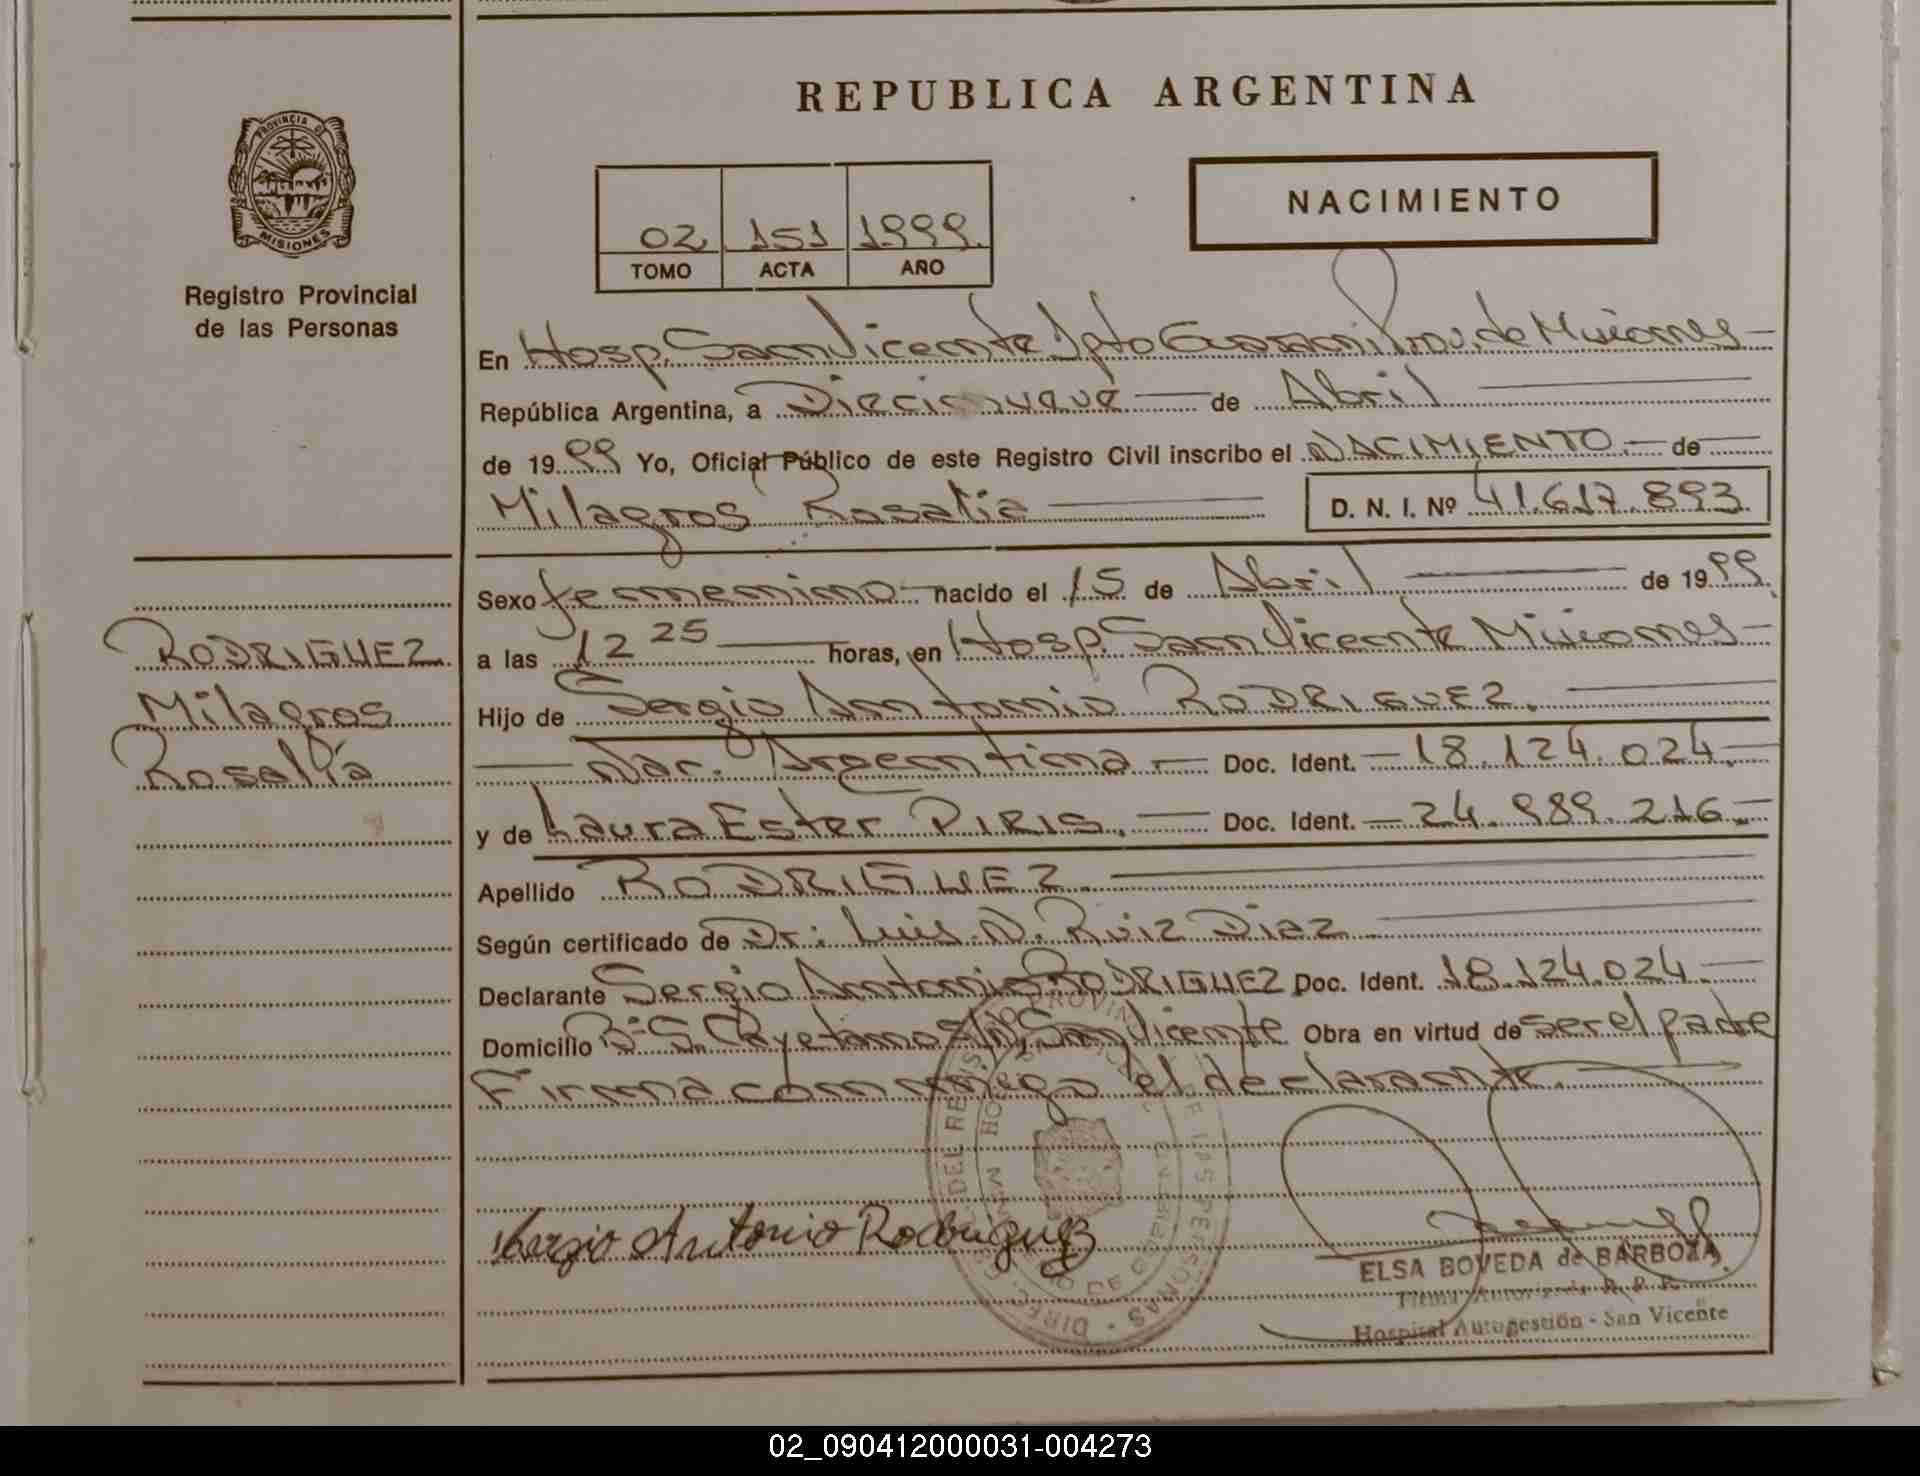 REPUBLICA ARGENTINA
PROVINCIA DE
MISIONES
Registro Provincial
de las Personas
02 151 1999
TOMO ACTA AÑO
NACIMIENTO
En Hosp. San Vicente Dpto Guarani Prov. de Misiones
República Argentina, a Diecinueve de Abril
de 1999 Yo, Oficial Público de este Registro Civil inscribo el NACIMIENTO. de
Milagros Rosalia D. N. I. Nº 41.617.893
RODRIGUEZ
Milagros
Rosalía
Sexo femenino nacido el 15 de Abril de 1999
a las 12 25 horas, en Hosp. San Vicente Misiones
Hijo de Sergio Antonio RODRIGUEZ.
Nac. Argentina Doc. Ident. 18.124.024.
y de Laura Ester PIRIS. Doc. Ident. 24.989.216.
Apellido RODRIGUEZ
Según certificado de Dr: Luis N. Ruiz Diaz
Declarante Sergio Antonio RODRIGUEZ Doc. Ident. 18.124.024.
Domicilio Bº S. Cayetano S/N San Vicente Obra en virtud de ser el padre
Firma conmigo el declarante.
Sergio Antonio Rodriguez
ELSA BOVEDA de BARBOZA
Firma Autorizada R. P. P.
Hospital Autogestión - San Vicente
02_090412000031-004273